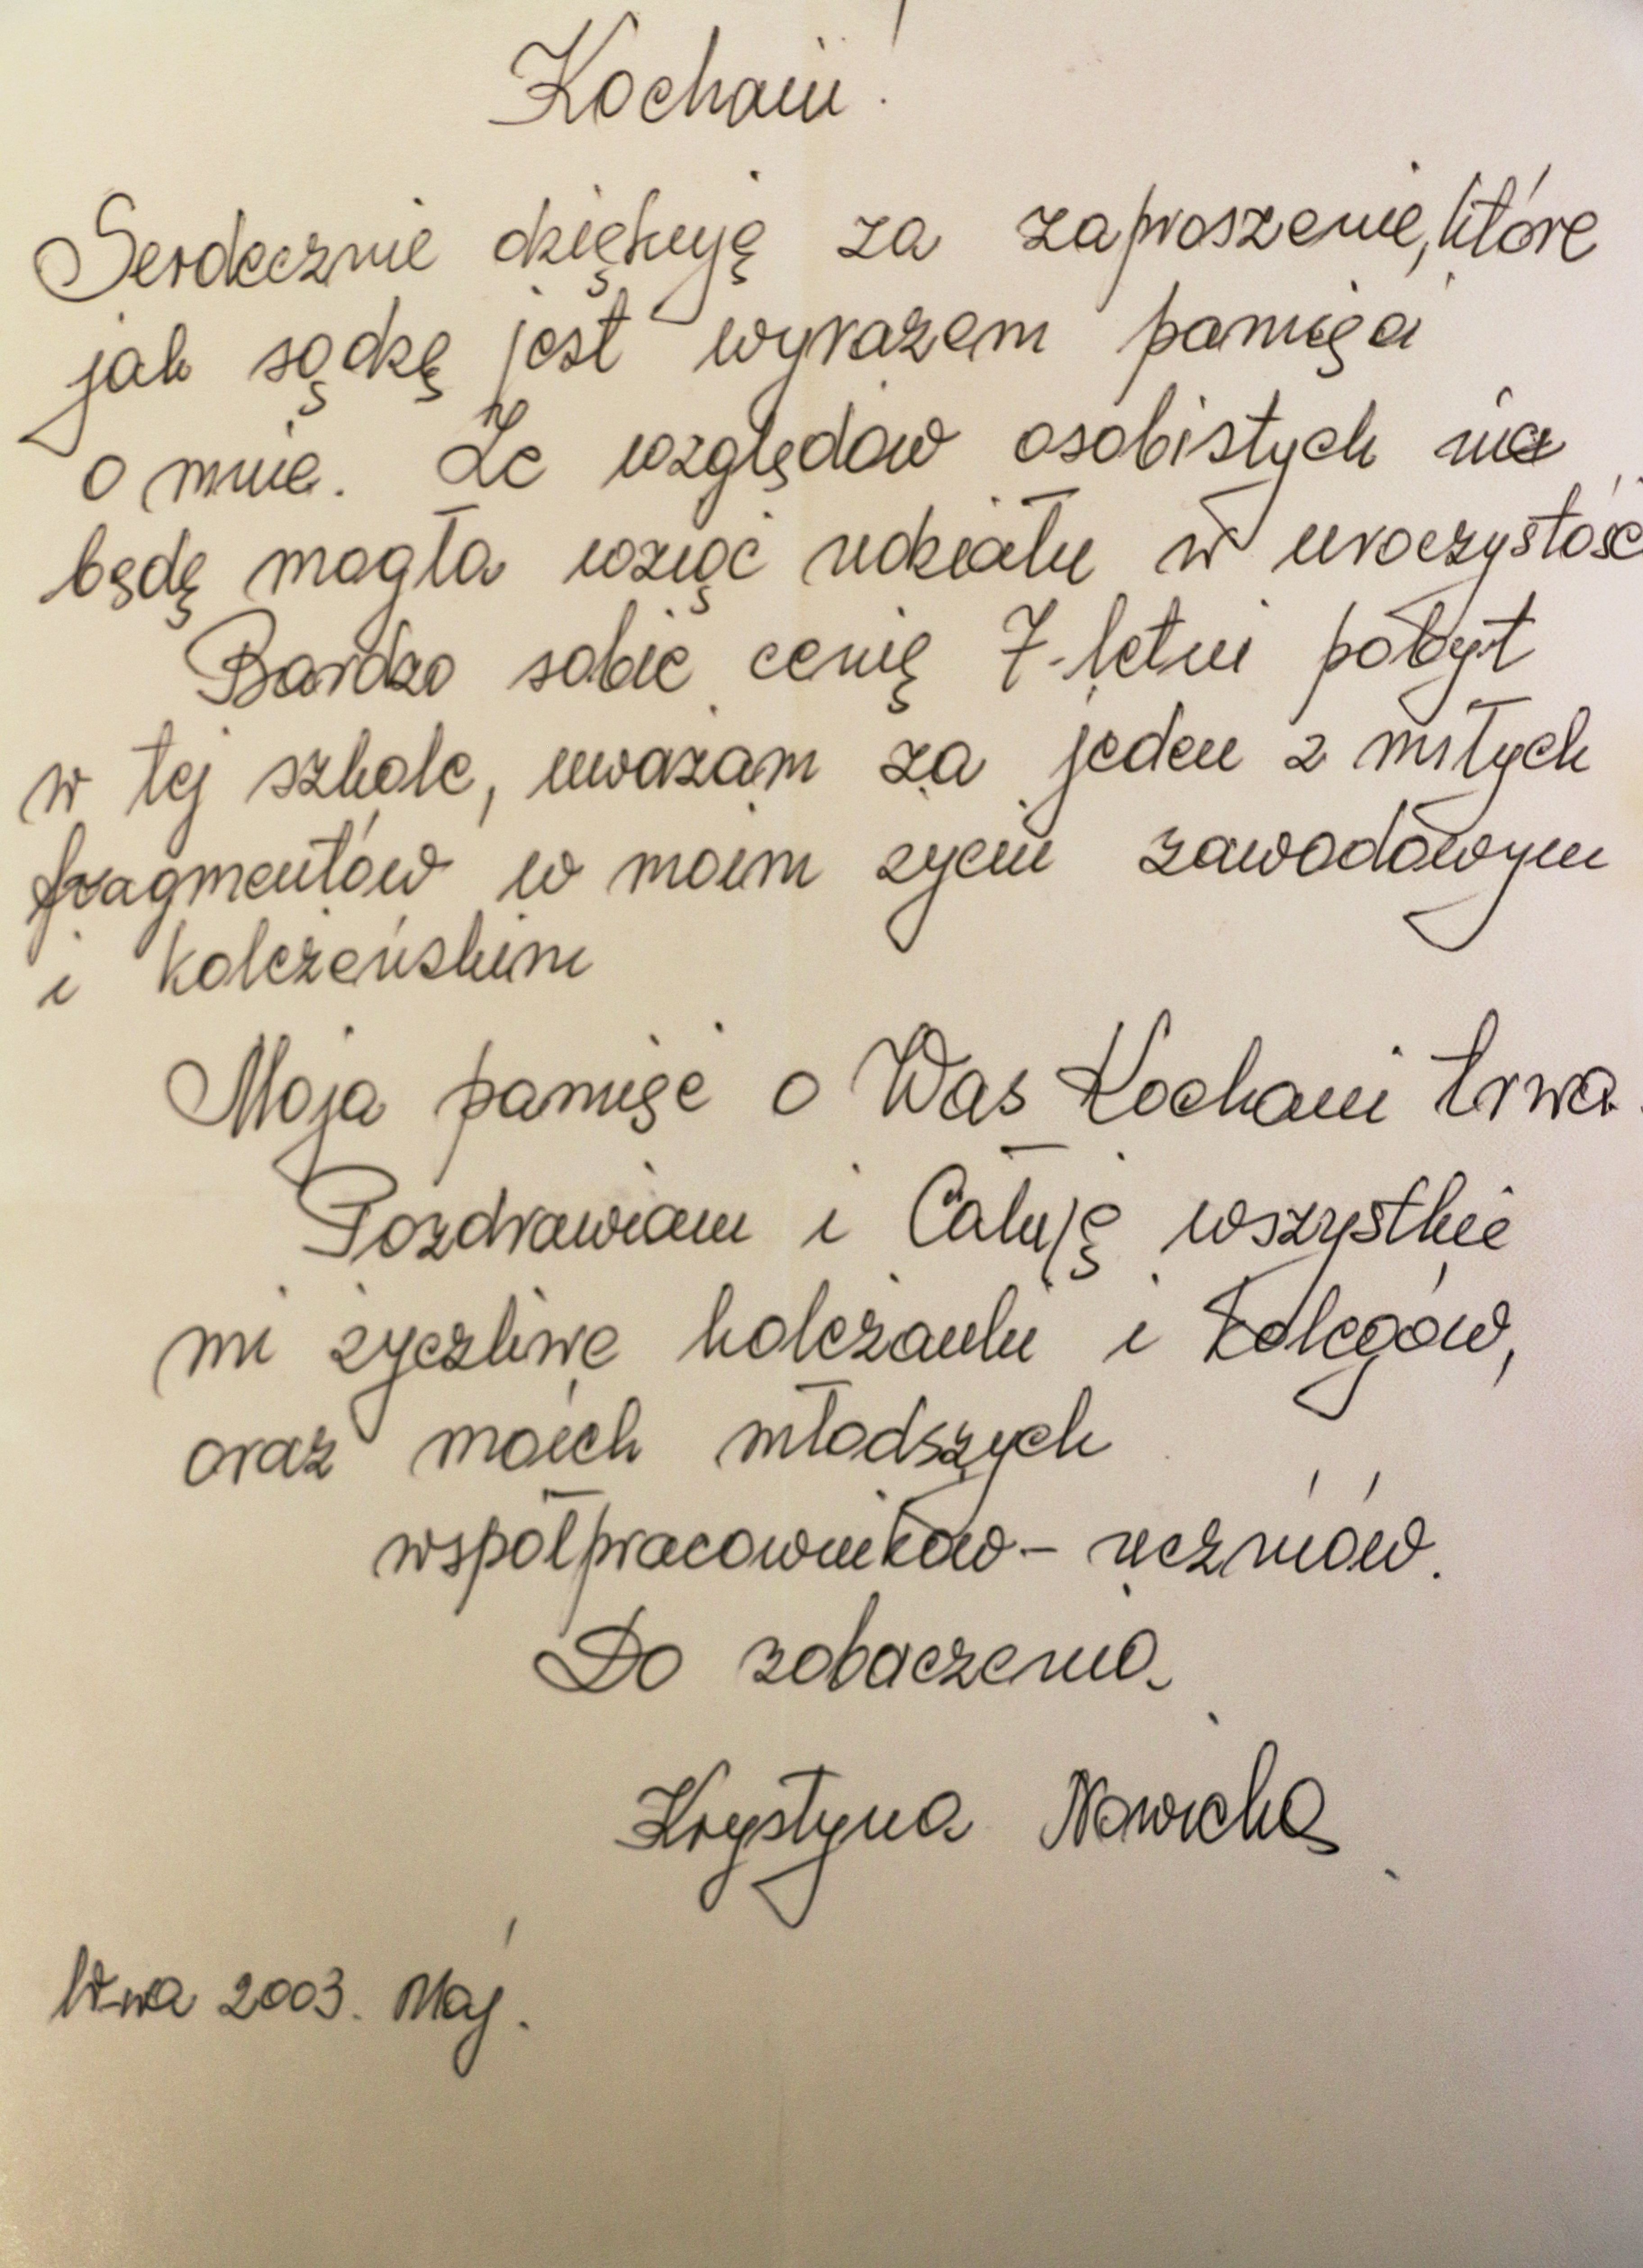 Kochani!
Serdecznie dziękuję za zaproszenie, które
jak sądzę jest wyrazem pamięci
o mnie. Ze względów osobistych nie
będę mogła wziąć udziału w uroczystośc
Bardzo sobie cenię 7-letni pobyt
w tej szkole, uważam za jeden z miłych
fragmentów w moim życiu zawodowym
i koleżeńskim
Moja pamięć o Was Kochani trwa.
Pozdrawiam i Całuję wszystkie
mi życzliwe koleżanki i Kolegów,
oraz moich młodszych
współpracowników - uczniów.
Do zobaczenia
Krystyna Nowicka
W-wa 2003. Maj.